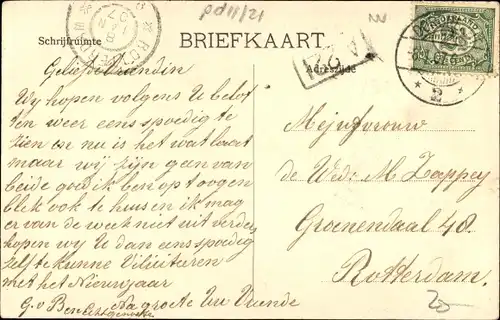 pd11/21
Schrijfruimte
BRIEFKAART.
Adreszijde
Geliefde vriendin
Wij hopen volgens U belof
ten weer eens spoedig te
zien en nu is het wat laat
maar wij zijn geen van
beide goed ik ben op t oogen
blik ook te huis en ik mag
er van de week niet uit verder
hopen wij U dan eens spoedig
zelf te kunne
met het Nieuwjaar
Na groete Uw Vriende
Mejufvrouw
de Wed: M. Zappey
Groenendaal 48.
Rotterdam.